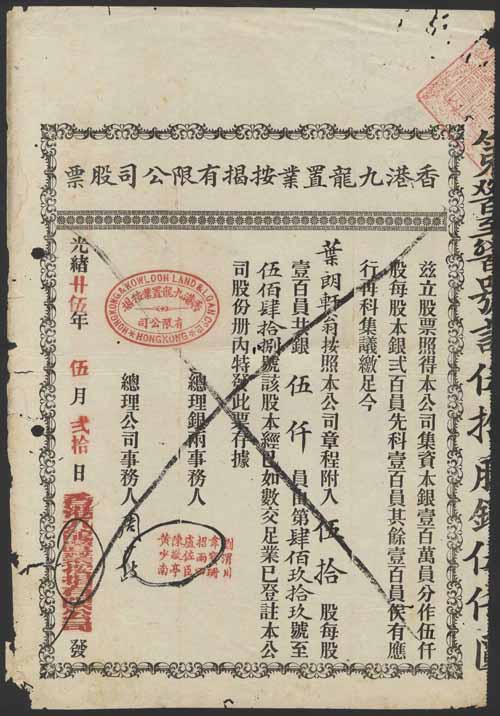 香港九龍置業按揭有限公司股票
號計伍拾股銀伍仟圓
茲立股票照得本公司集資本銀壹百萬員分作伍仟
股每股本銀弍百員先科壹百員其餘壹百員俟有應
行再科集議繳足今
葉朗軒翁按照本公司章程附入伍拾股每股
壹百員共銀伍仟員由第肆佰玖拾玖號至
伍佰肆拾捌號該股本經已如數交足業已登註本公
司股份册內特發此票存據
總理銀兩事務人
劉渭川
招雨田
盧佐臣
陳敬亭
黃少南
總理公司事務人
HONGKONG & KOWLOON LAND & LOAN CO. LD
香港九龍置業按揭
有限公司
HONGKONG
光緒廿伍年伍月弍拾日香港九龍置業按揭有限公司發